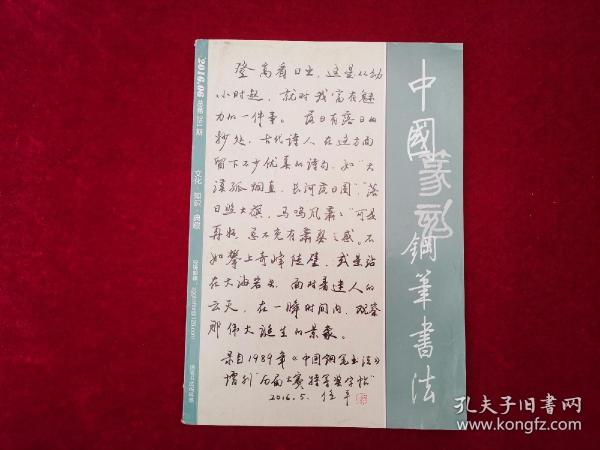 登高看日出，这是从幼
小时起，就对我富有魅
力的一件事。落日有落日的
妙处，古代诗人在这方面
留下不少优美的诗句，如“大
漠孤烟直，长河落日圆”，“落
日照大旗，马鸣风萧萧”可是
再好，总不免有萧瑟之感。不
如攀上奇峰陡壁，或是站
在大海岩头，面对着迷人的
云天，在一瞬时间内，观察
那伟大诞生的景象。
录自1989年《中国钢笔书法》
增刊“历届大赛特等奖字帖”
2016.5.
中國篆刻鋼筆書法
2016.06
文化 知识 典藏
孔夫子旧书网
www.kongfz.com